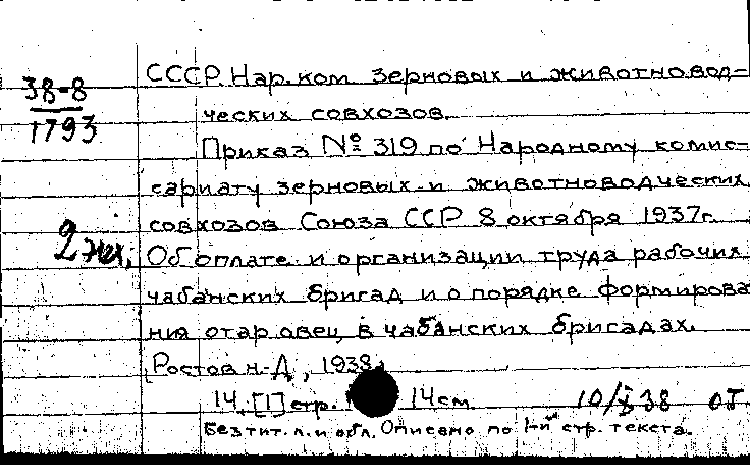 38-8
1793
2 экз.
СССР. Нар. ком. зерновых и животновод-
ческих совхозов.
Приказ № 319 по Народному комис-
сариату зерновых и животноводческих
совхозов Союза ССР 8 октября 1937г.
Об оплате и организации труда рабочих
чабанских бригад и о порядке формирова
ния отар овец в чабанских бригадах.
[Ростов н-Д, 1938.
14, [1] стр. 14см. 10/X 38
Без тит. л. и обл. Описано по 1-й стр. текста.